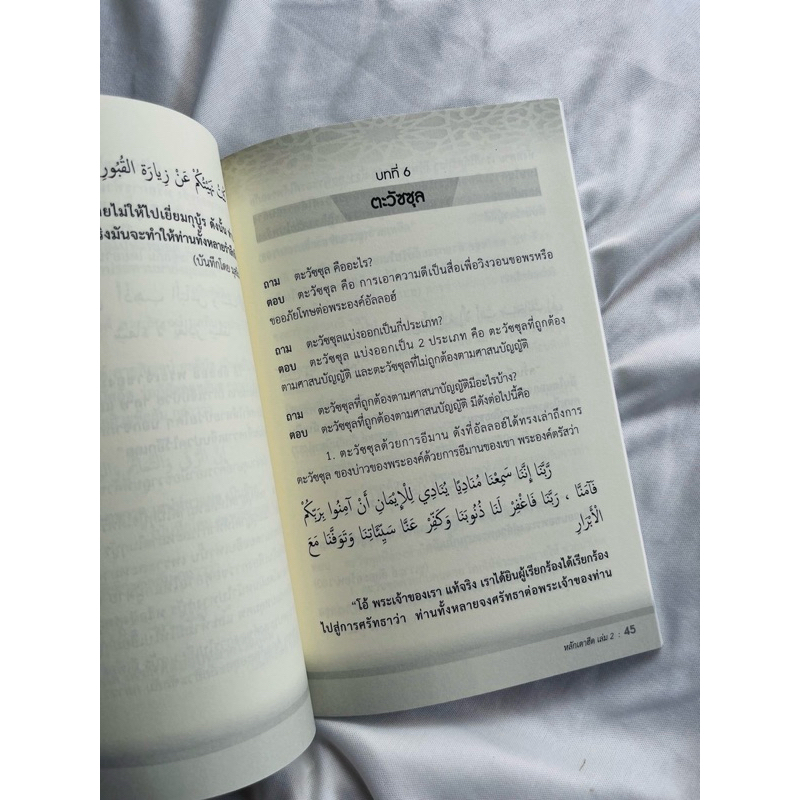 عَنْ زِيَارَةِ القُبُورِ
ไม่ให้ไปเยี่ยมกุบู้ร ดังนั้น
มันจะทำให้ท่านทั้งหลาย
(บันทึกโดย
บทที่ 6
ตะวัซซุล
ถาม ตะวัซซุล คืออะไร?
ตอบ ตะวัซซุล คือ การเอาความดีเป็นสื่อเพื่อวิงวอนขอพรหรือ
ขออภัยโทษต่อพระองค์อัลลอฮ์
ถาม ตะวัซซุลแบ่งออกเป็นกี่ประเภท?
ตอบ ตะวัซซุล แบ่งออกเป็น 2 ประเภท คือ ตะวัซซุลที่ถูกต้อง
ตามศาสนบัญญัติ และตะวัซซุลที่ไม่ถูกต้องตามศาสนบัญญัติ
ถาม ตะวัซซุลที่ถูกต้องตามศาสนาบัญญัติมีอะไรบ้าง?
ตอบ ตะวัซซุลที่ถูกต้องตามศาสนบัญญัติ มีดังต่อไปนี้คือ
1. ตะวัซซุลด้วยการอีมาน ดังที่อัลลอฮ์ได้ทรงเล่าถึงการ
ตะวัซซุล ของบ่าวของพระองค์ด้วยการอีมานของเขา พระองค์ตรัสว่า
رَّبَّنَا إِنَّنَا سَمِعْنَا مُنَادِيًا يُنَادِي لِلْإِيْمَانِ أَنْ آمِنُوا بِرَبِّكُمْ
فَآمَنَّا ، رَبَّنَا فَاغْفِرْ لَنَا ذُنُوبَنَا وَكَفِّرْ عَنَّا سَيِّئَاتِنَا وَتَوَفَّنَا مَعَ
الْأَبْرَارِ
“โอ้ พระเจ้าของเรา แท้จริง เราได้ยินผู้เรียกร้องได้เรียกร้อง
ไปสู่การศรัทธาว่า ท่านทั้งหลายจงศรัทธาต่อพระเจ้าของท่าน
หลักเตาฮีด เล่ม 2 : 45